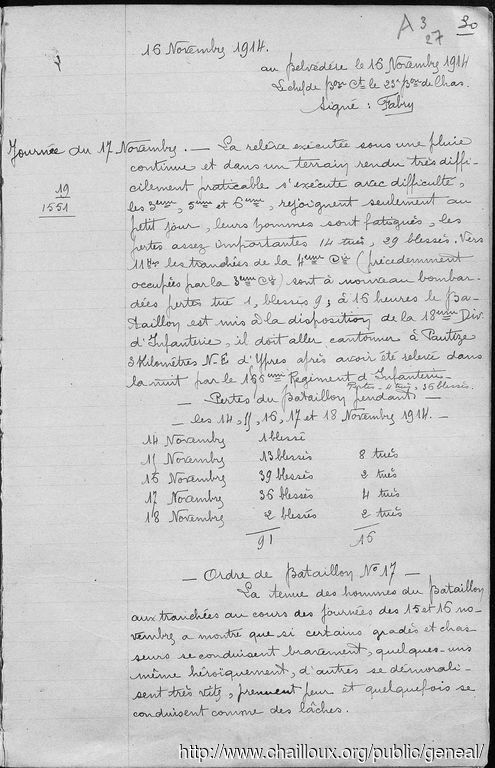 A 3
27
30
16 Novembre 1914.
au Belvédère le 16 Novembre 1914
Le chef de Bon Ct le 23e Bon de Chas.
Signé : Fabry
Journée du 17 Novembre. — La relève exécutée sous une pluie
continue et dans un terrain rendu très diffi-
cilement praticable s'exécute avec difficulté,
19
1551
les 3eme, 5eme et 6eme, rejoignent seulement au
petit jour, leurs hommes sont fatigués, les
pertes assez importantes 14 tués, 29 blessés. Vers
11 Hres les tranchées de la 4eme Cie (précédemment
occupées par la 3eme Cie) sont à nouveau bombar-
dées pertes tué 1, blessés 9; à 16 heures le Ba-
taillon est mis à la disposition de la 18eme Div.
d'Infanterie, il doit aller cantonner à
3 Kilomètres N-E d'Ypres après avoir été relevé dans
la nuit par le Régiment d'Infanterie
Pertes - 4 tués, 36 blessés.
— Pertes du Bataillon pendant —
— les 14, 15, 16, 17 et 18 Novembre 1914. —
14 Novembre 1 blessé
15 Novembre 13 blessés 8 tués
16 Novembre 39 blessés 2 tués
17 Novembre 36 blessés 4 tués
18 Novembre 2 blessés 2 tués
91 16
— Ordre de Bataillon No 17 —
La tenue des hommes du Bataillon
aux tranchées au cours des journées des 15 et 16 no-
vembre a montré que si certains gradés et chas-
seurs se conduisent bravement, quelques-uns
même héroïquement, d'autres se démorali-
sent très vite, prennent peur et quelquefois se
conduisent comme des lâches.
http://www.chailloux.org/public/geneal/